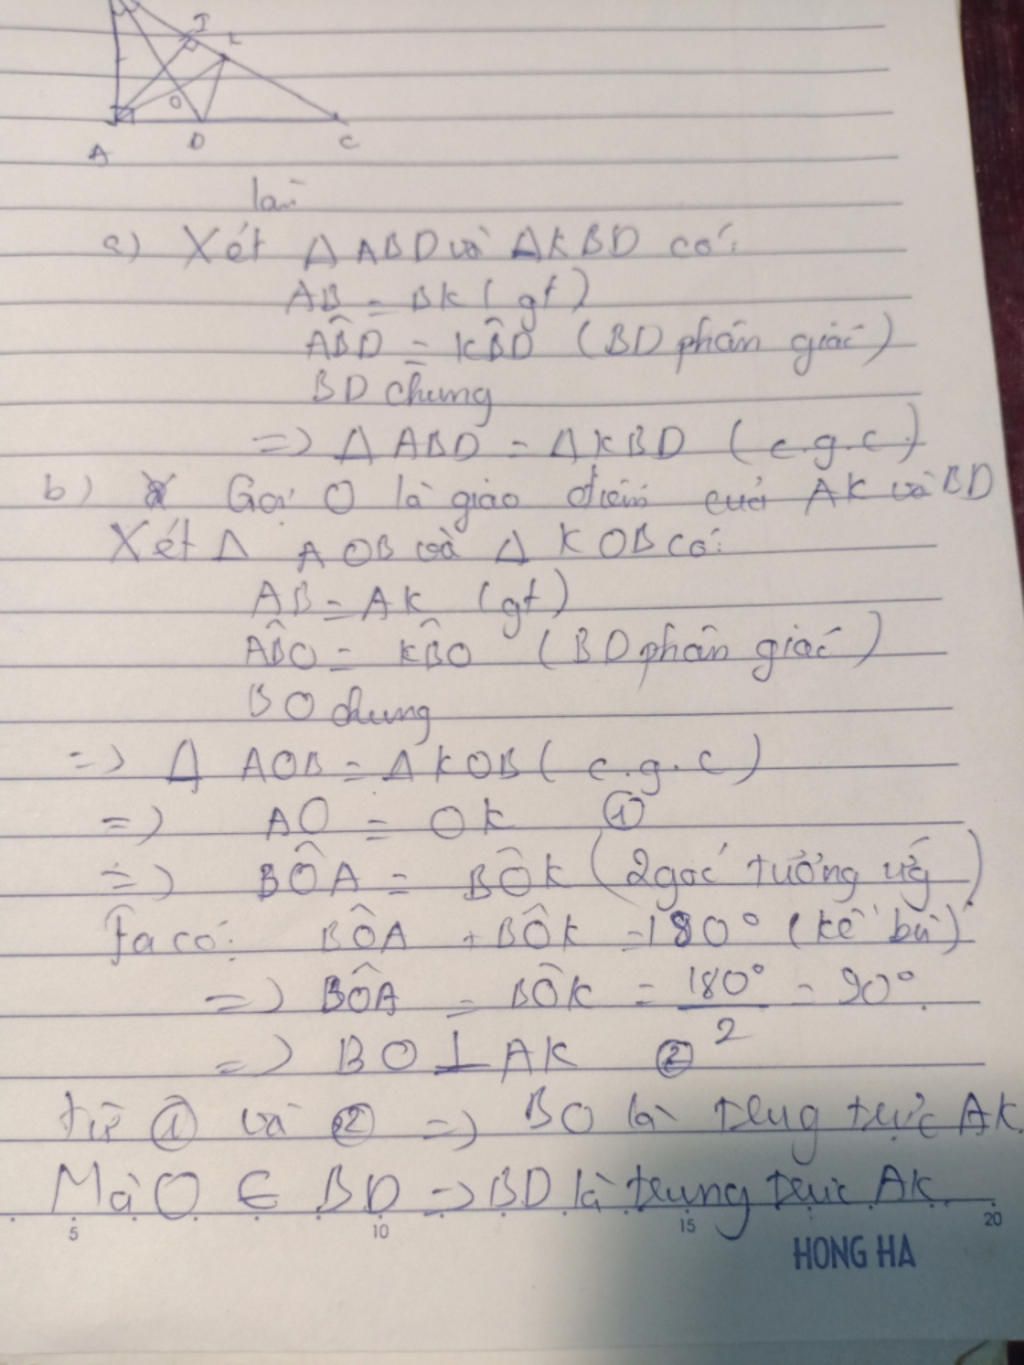 I
O
A D C
a) Xét Δ ABD và ΔKBD có:
AB = BK (gt)
AB̂D = KB̂D (BD phân giác)
BD chung
=> Δ ABD = ΔKBD (c.g.c)
b) Gọi O là giao điểm của AK và BD
Xét Δ AOB và Δ KOB có:
AB = AK (gt)
AB̂O = KB̂O (BD phân giác)
BO chung
=> Δ AOB = ΔKOB (c.g.c)
=> AO = OK ①
=> BÔA = BÔK (2 góc tương ứng)
Ta có: BÔA + BÔK = 180° (kề bù)
=> BÔA = BÔK = 180°/2 = 90°.
=> BO ⊥ AK ②
Từ ① và ② => BO là trung trực AK.
Mà O ∈ BD => BD là trung trực AK.
5 10 15 20
HONG HA